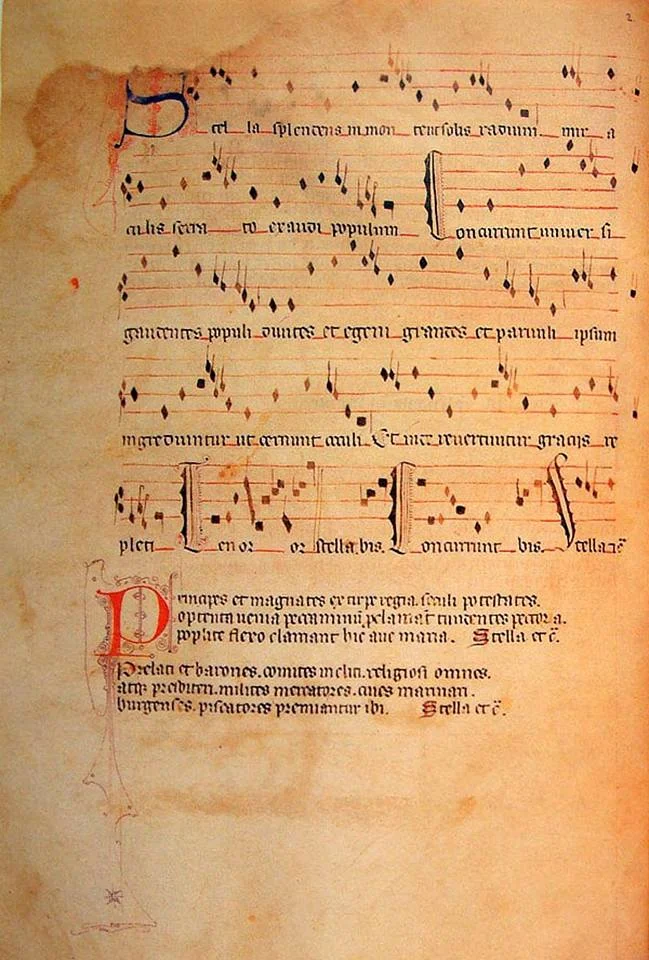 2
Stel la splendens in mon te ut solis radium mir a
culis serra to exaudi populum Concurrunt univer si
gaudentes populi divites et egeni grandes et parvuli ipsum
ingrediuntur ut cernunt oculi Et inde revertuntur graciis re
pleti Tenor or stella. bis. Concurrunt bis. Stella
Principes et magnates ex tirpe regia. seculi potestates.
optenta venia peccaminum tundentes pectora.
poplite flexo clamant hic ave maria. Stella et c̄.
Prelati et barones. comites incliti. religiosi omnes.
atque milites mercatores. cives marinari.
burgenses. piscatores premiantur ibi. Stella et c̄.